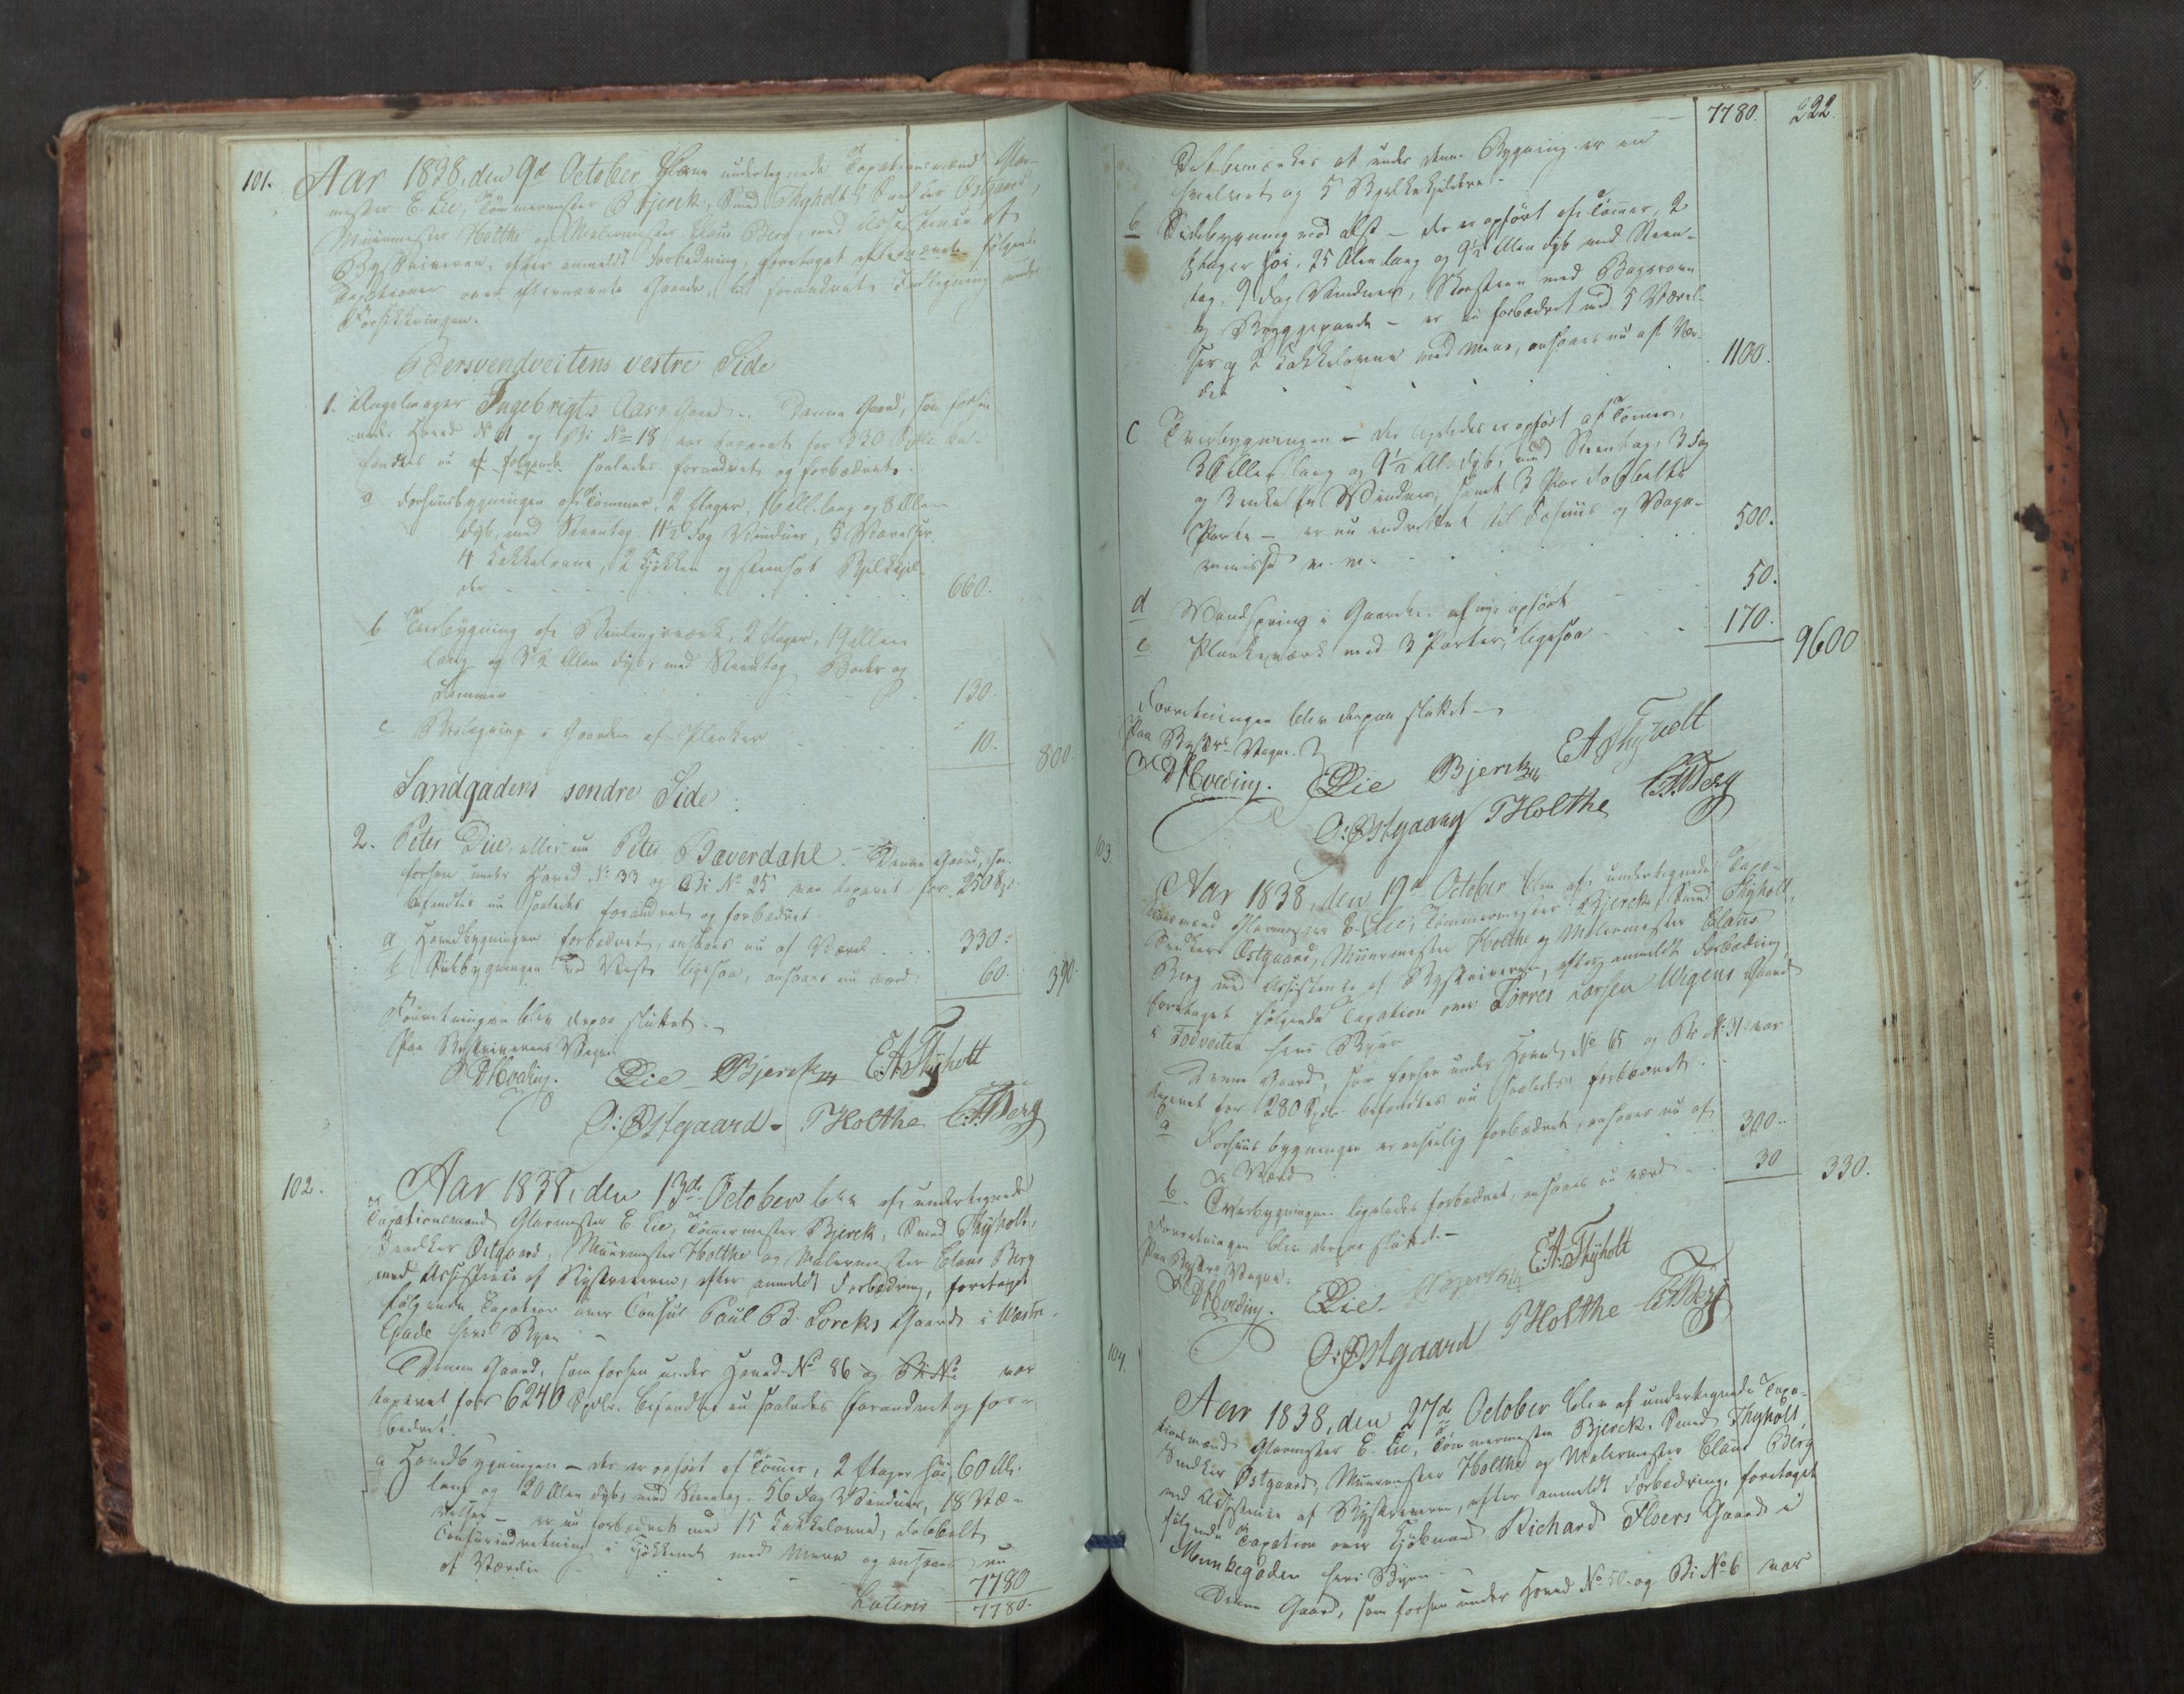 101. Aar 1838, den 9de October bleve undertegnede Taxationsmænd Glar-
mester E. Lie, Tömmermester Bjerck, Smed Thyholt, Snedker Östgaard,
Muurmester Holthe og Malermester Claus Berg, med Assistence af
Byskriveren, efter anmeldt Forbedring, foretaget efternævnte følgende
Taxationer over efternævnte Gaarde, til forandret Indtegning under
Forsikkringen.
Pedersvendveitens vestre Side
1. Ingebrigts Aars Gaard. Denne Gaard, som forhen
under Hoved No 61 og Bi No 18 var taxeret for 330 Spdlr. be-
findes nu at følgende saaledes forandret og forbedret.
a Forhuusbygningen af Tömmer, 2 Etager, 16 All. lang og 8 Allen
dyb, med Steentag, 11½ Fag Vinduer, 5 Værelser,
4 Kakkelovne, 2 Kjökken og steensat Bjelkekjel-
der 660.
b Tverbygning af Bindingsværk, 2 Etager, 19 Allen
lang og 3½ Allen dyb, med Steentag Boder og
Kammer 130.
c Brolægning i Gaarden af Planker 10. 800
Sandgadens søndre Side
2. Peter Due, eller nu Peter Bæverdahl. Denne Gaard, som
forhen under Hoved No 33 og Bi No 25 var taxeret for 250 Spd.
befindes nu saaledes forandret og forbedret.
a Hovedbygningen forbedret, ansees nu af Værd 330.
b Sidebygningen ved Vest ligesaa, ansees nu værd 60. 390.
Forretningen blev derpaa sluttet.
Paa Byskriverens Vegne
Hveding. ELie Bjerck EAThyholt
O: Östgaard THolthe CABerg
102. Aar 1838, den 13de October blev af undertegnede
Taxationsmænd Glarmester E. Lie, Tömmermester Bjerck, Smed Thyholt,
Snedker Östgaard, Muurmester Holthe og Malermester Claus Berg
med Assistence af Byskriveren, efter anmeldt Forbedring, foretaget
følgende Taxation over Consul Paul B. Lorcks Gaard i Westre
Gade heri Byen
Denne Gaard, som forhen under Hoved No 86 og Bi No var
taxeret for 6240 Spdlr. befindes nu saaledes forandret og for-
bedret.
a Hovedbygningen - der er opført af Tömmer, 2 Etager høi, 60 All.
lang og 20 Allen dyb, med Steentag, 56 Fag Vinduer, 18 Væ-
relser - er nu forbedret med 15 Kakkelovne, dobbelt
Comfurindretning i Kjøkkenet med Mere og ansees nu
af Værdie 7780
Lateris 7780.
7780. 222.
Det bemærkes at under denne Bygning er en
hvelvet og 5 Bjelkekjeldere.
b Sidebygning mod Øst - der er opført af Tömmer, 2
Etager høi, 25 Alen lang og 9½ Allen dyb med Steen-
tag, 9 Fag Vinduer, Skorsteen med Bagerovn
og Bryggepande - er nu forbedret med 5 Værel-
ser og 2 Kakkelovne med Mere, ansees nu af Vær-
die 1100.
c Tverbygningen - der ligeledes er opført af Tömmer,
30 Allen lang og 9½ All. dyb, med Steentag, 3 Fag
og 3 enkelte Vinduer, samt 3 Par dobbelte
Porte - er nu indrettet til Fæhuus og Vogn-
remisse m. m. 500.
d Vandspring i Gaarden af nye opført 50.
e Plankeværk med 3 Porter, ligesaa 170. 9600
Forretningen blev derpaa sluttet
Paa Byskrs Vegne.
Hveding. ELie Bjerck EAThyholt
O: Östgaard THolthe CABerg
103. Aar 1838, den 19de October blev af undertegnede Taxa-
tionsmænd Glarmester E. Lie, Tömmermester Bjerck, Smed Thyholt,
Snedker Östgaard, Muurmester Holthe og Malermester Claus
Berg med Assistence af Byskriveren, efter anmeldt Forbedring,
foretaget følgende Taxation over Törres Larsen Wigens Gaard
i Fodveiten heri Byen
Denne Gaard, som forhen under Hoved No 65 og Bi No 31 var
taxeret for 280 Spdlr. befindes nu saaledes forbedret.
a Forhuusbygningen er anseelig forbedret, ansees nu af
Værd 300.
b. Tverbygningen ligeledes forbedret, ansees nu værd 30 330.
Forretningen blev derpaa sluttet.
Paa Byskrs Vegne.
Hveding. ELie Bjerck E.A.Thyholt
O: Östgaard THolthe CABerg
104. Aar 1838, den 27de October blev af undertegnede Taxa-
tionsmænd Glarmester E. Lie, Tömmermester Bjerck, Smed Thyholt,
Snedker Östgaard, Muurmester Holthe og Malermester Claus Berg
med Assistence af Byskriveren, efter anmeldt Forbedring, foretaget
følgende Taxation over Kjøbmand Richard Floers Gaard i
Munkegaden heri Byen
Denne Gaard, som forhen under Hoved No 50 og Bi No 6 var